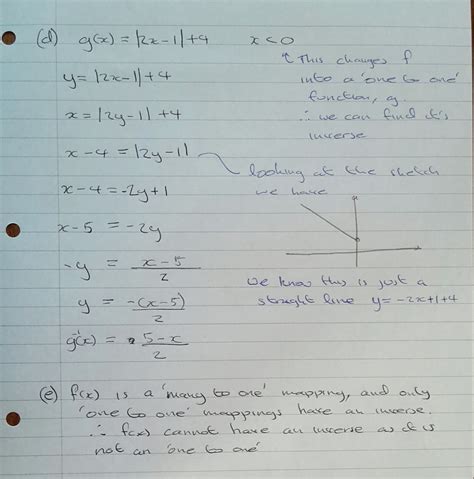 (d) g(x) = |2x-1|+4 x<0
↑ This changes f
y = |2x-1|+4 into a 'one to one'
function, g.
x = |2y-1|+4 ∴ we can find it's
inverse
x-4 = |2y-1|
looking at the sketch
x-4 = -2y+1 we have
x-5 = -2y
-y = x-5/2
y = -(x-5)/2 we know this is just a
straight line y=-2x+1+4
g⁻¹(x) = 5-x/2
(e) f(x) is a 'many to one' mapping, and only
'one to one' mappings have an inverse.
∴ f(x) cannot have an inverse as it is
not an 'one to one'